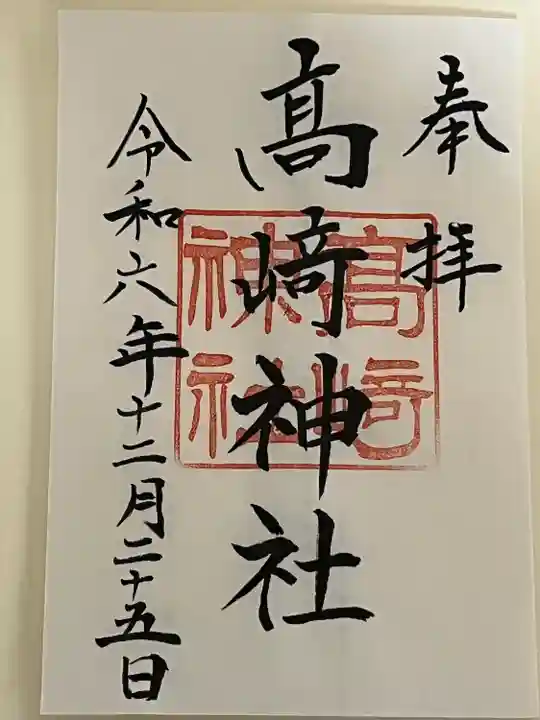 奉拝
髙﨑神社
髙﨑
神社
令和六年十二月二十五日